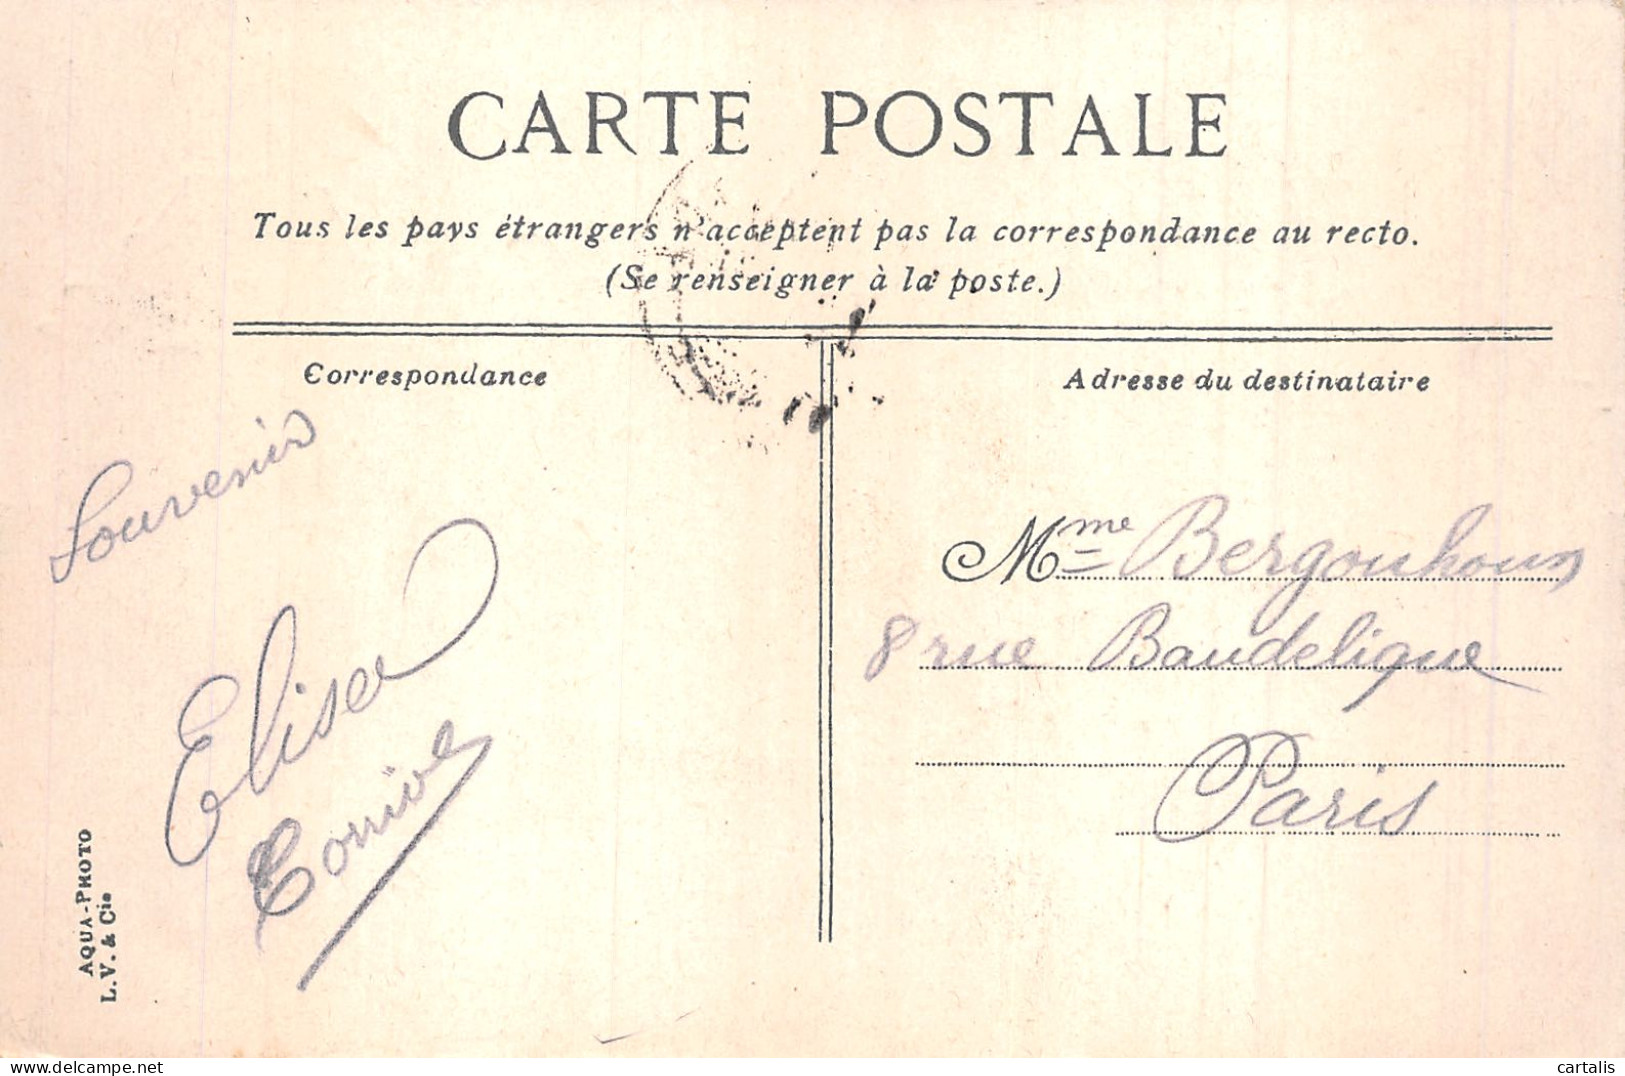 CARTE POSTALE
Tous les pays étrangers n'acceptent pas la correspondance au recto.
(Se renseigner à la poste.)
Correspondance
Souvenir
Elisa
AQUA-PHOTO
L. V. & Cie
Adresse du destinataire
Mme Bergouhoun
8 rue Baudelique
Paris
cartalis
delcampe.net